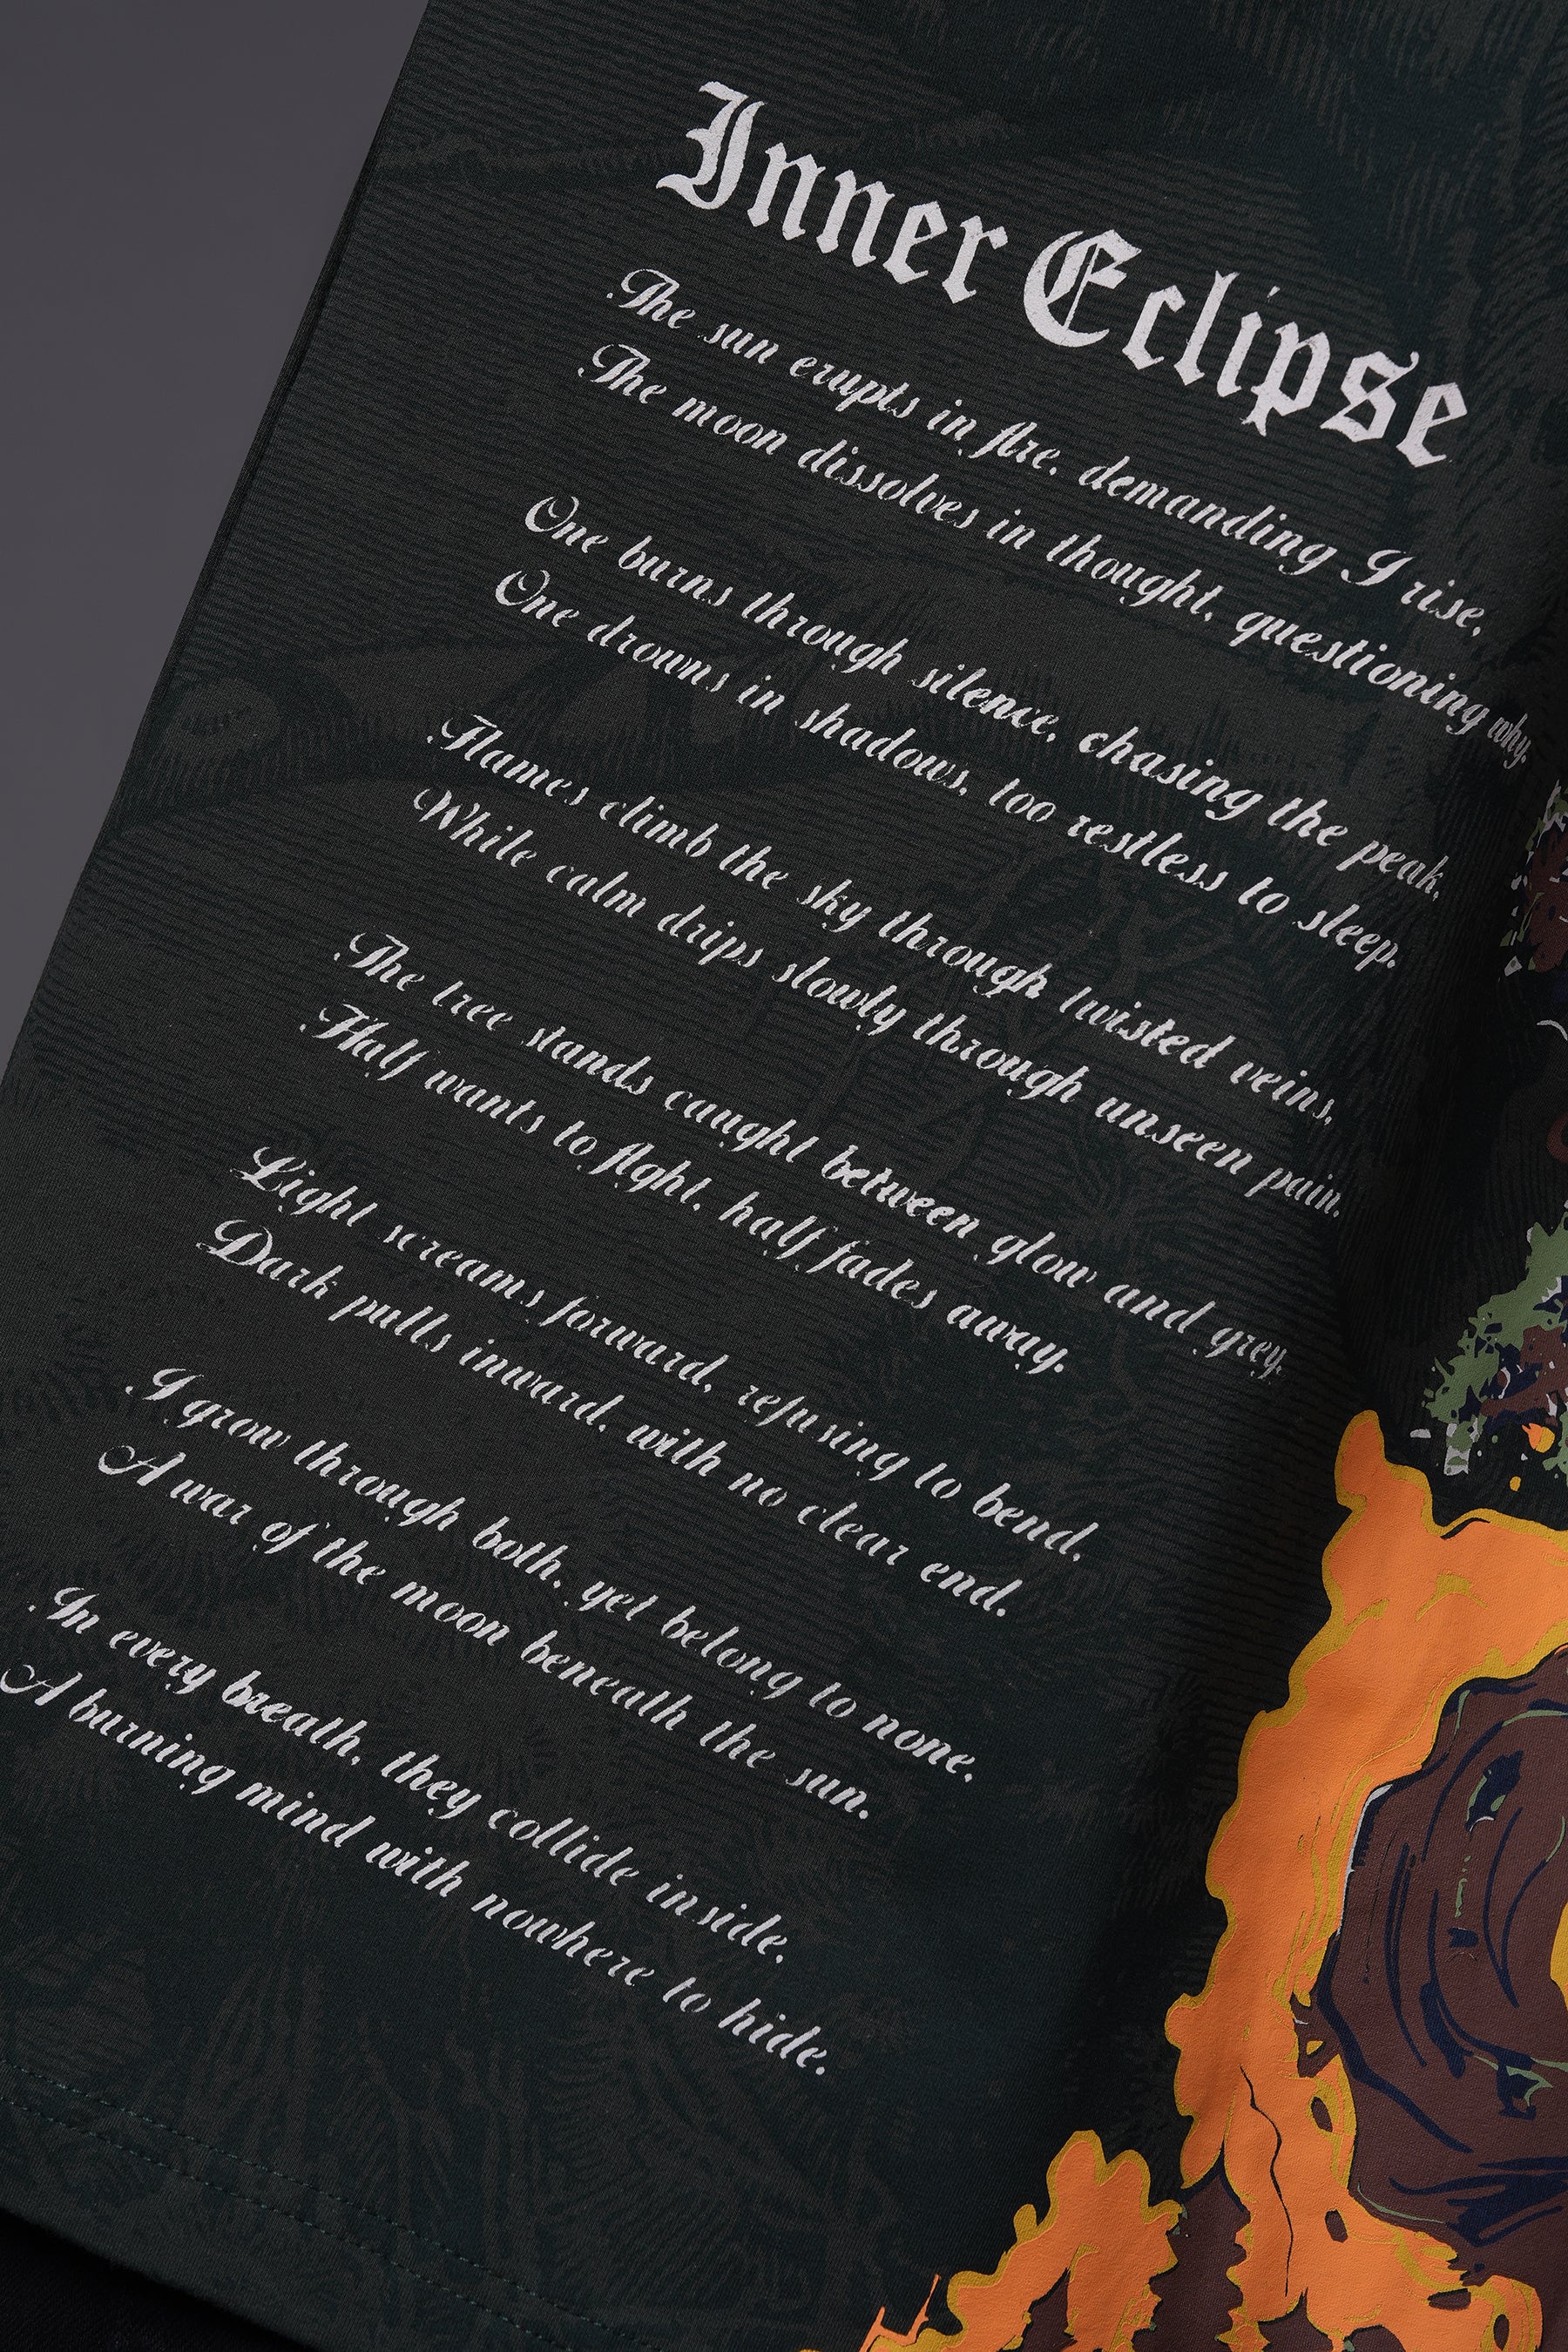 Inner Eclipse
The sun erupts in fire, demanding I rise,
The moon dissolves in thought, questioning why.
One burns through silence, chasing the peak,
One drowns in shadows, too restless to sleep.
Flames climb the sky through twisted veins,
While calm drips slowly through unseen pain.
The tree stands caught between glow and grey,
Half wants to fight, half fades away.
Light screams forward, refusing to bend,
Dark pulls inward, with no clear end.
I grow through both, yet belong to none,
A war of the moon beneath the sun.
In every breath, they collide inside,
A burning mind with nowhere to hide.